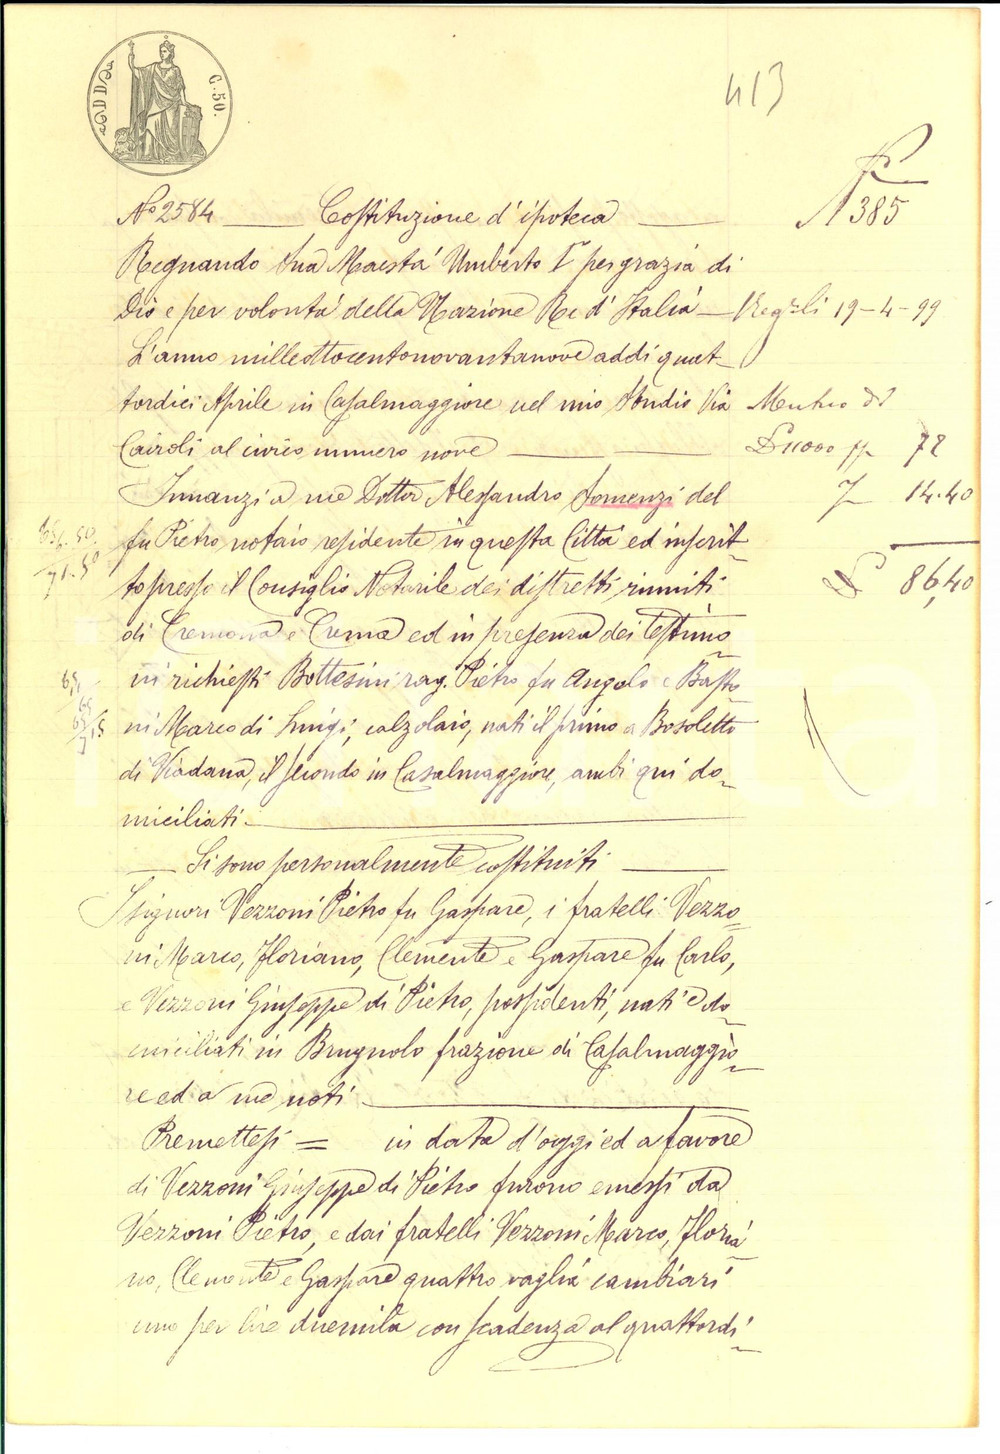 C. 50.
413
N° 2584 Costituzione d'ipoteca
N 385
Regnando Sua Maestà Umberto I° per grazia di
Dio e per volontà della Nazione Re d'Italia
19-4-99
L'anno milleottocentonovantanove addì quat-
tordici Aprile in Casalmaggiore nel mio Studio Via
Cairoli al civico numero nove
£ 11000 72
14.40
£ 86,40
Innanzi a me Dottor Alessandro Tomenzi del
fu Pietro, notaio residente in questa Città ed inscrit-
to presso il Consiglio Notarile dei distretti riuniti
di Cremona e Crema ed in presenza dei testimo-
ni richiesti Bottesini rag. Pietro fu Angelo e Basto-
ni Marco di Luigi, calzolaio, nati il primo a Bosoletto
di Viadana, il secondo in Casalmaggiore, ambi qui do-
miciliati.
Si sono personalmente costituiti
I signori Vezzoni Pietro fu Gaspare, i fratelli Vezzo-
ni Marco, Floriano, Clemente e Gaspare fu Carlo,
e Vezzoni Giuseppe di Pietro, possidenti, nati e do-
miciliati in Brugnolo frazione di Casalmaggio-
re ed a me noti
Premettesi = in data d'oggi ed a favore
di Vezzoni Giuseppe di Pietro furono emessi da
Vezzoni Pietro, e dai fratelli Vezzoni Marco, Floria-
no, Clemente e Gaspare quattro vaglia cambiari
uno per lire duemila con scadenza al quattordi-